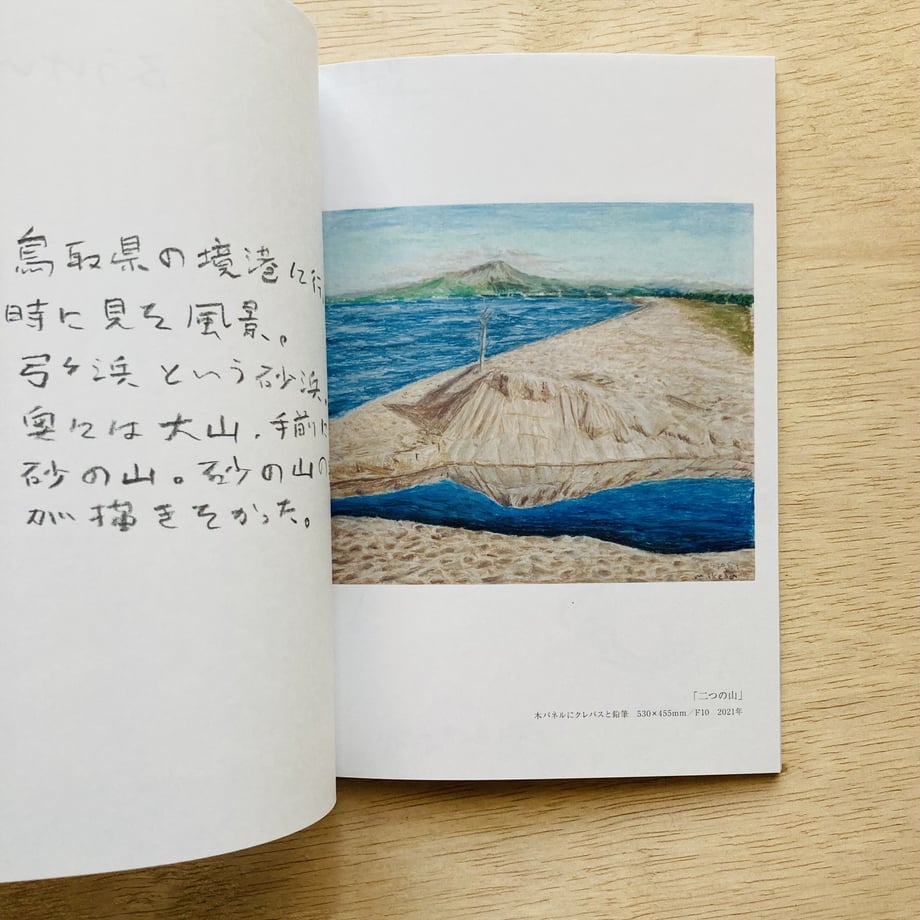 鳥取県の境港に行
時に見た風景。
弓ケ浜という砂浜。
奥には大山、手前に
砂の山。砂の山の
が描きたかった。
「二つの山」
木パネルにクレパスと鉛筆　530×455mm／F10　2021年